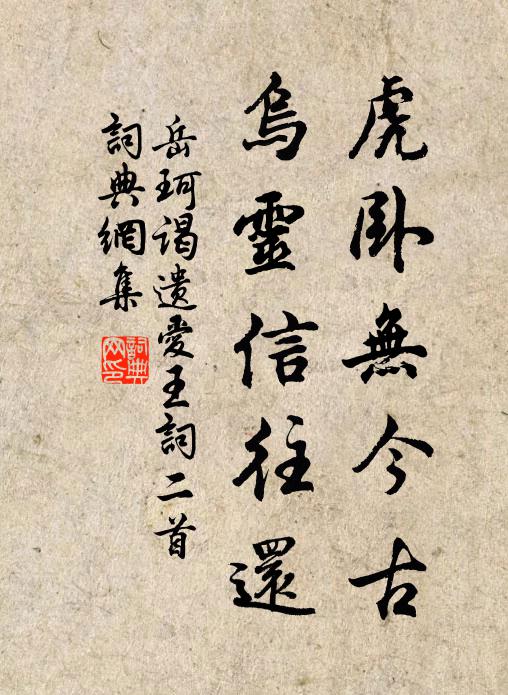 虎卧無今古
烏靈信往還
岳珂谒遺愛王詞二首
詞典網集
詞典
网印